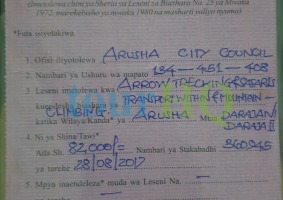 (Imetolewa chini ya Sheria ya Leseni za Biashara Na. 25 ya Mwaka
1972, marekebisho ya mwaka 1980 na masharti yaliyo nyuma)
*Futa isiyotakiwa.
1. Ofisi iliyotolewa ARUSHA CITY COUNCIL
2. Nambari ya Ushuru wa mapato 134-451-408
3. Leseni imetolewa kwa ARROW TRECHING & SAFARIS
kuendesha TRANSPORT WITHIN & MOUNTAIN-
CLIMBING.
katika Wilaya/Kanda *ya ARUSHA Mtaa DARAJANI
DARAJA II
4. Ni ya Shina/Tawi*
Ada Sh. 82,000/= Nambari ya Stakabadhi 860945
ya tarehe 28/08/2017
5. Mpya maendelezo* muda wa Leseni Na. —